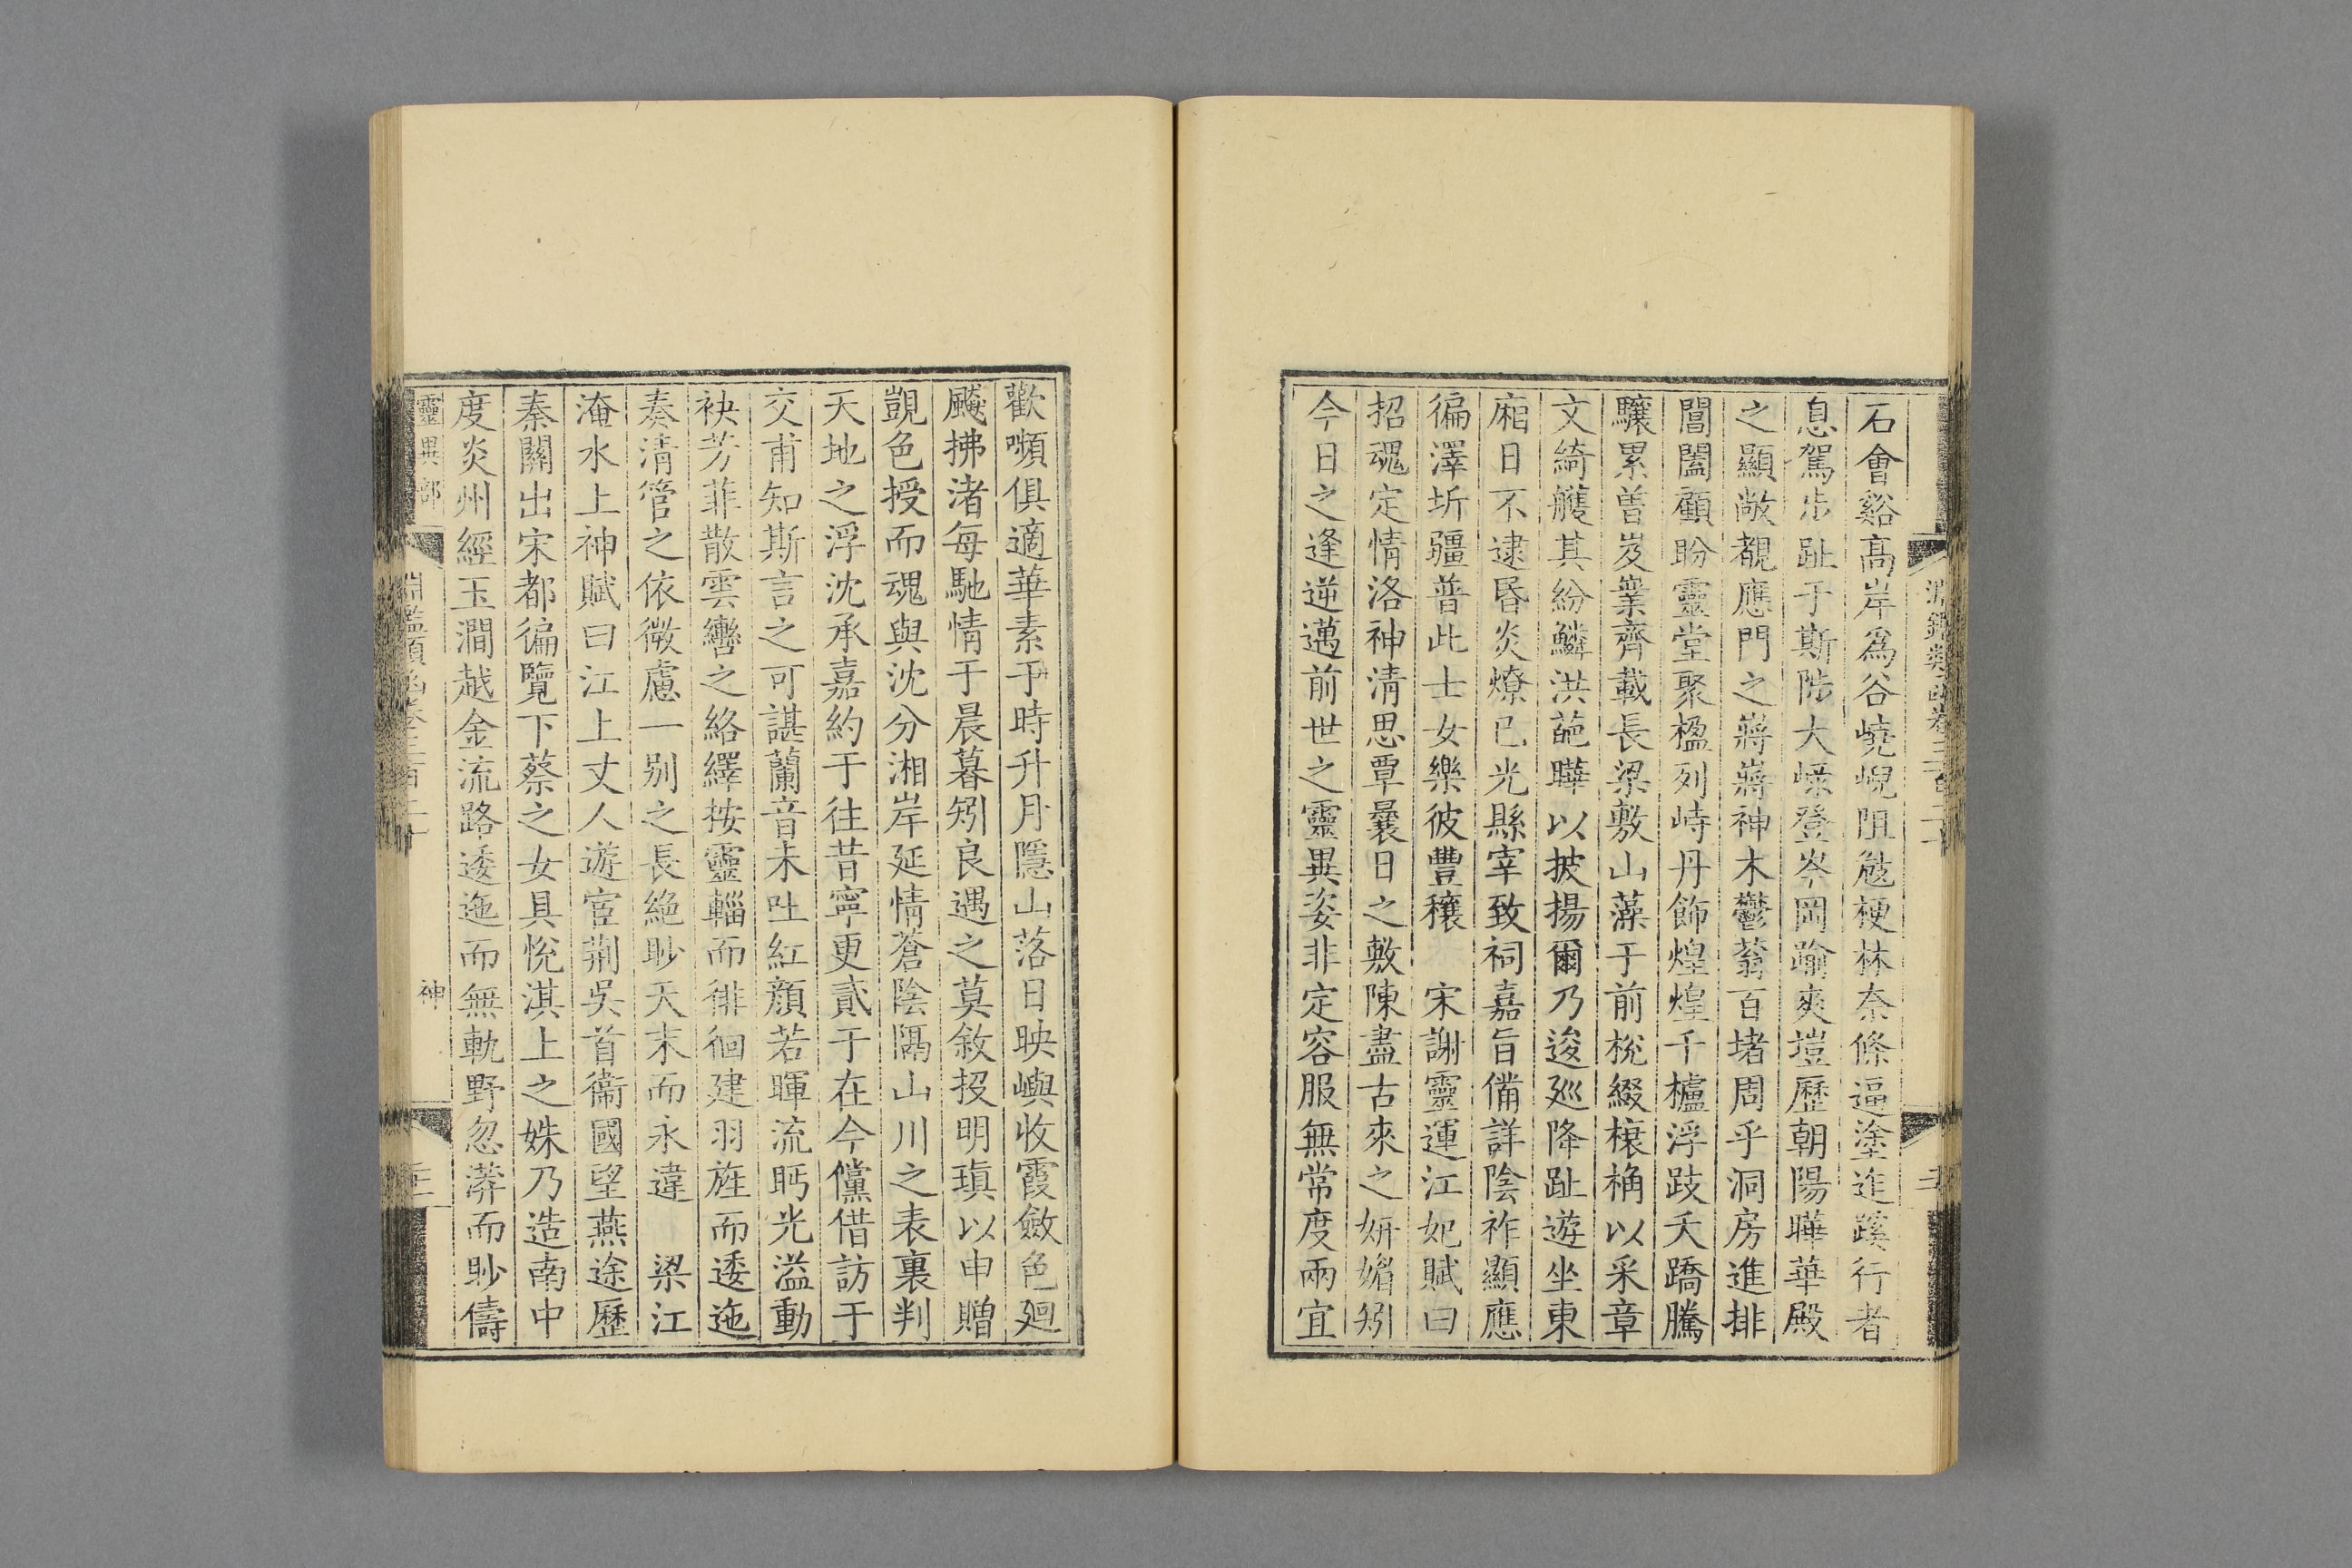 石會谿高岸爲谷嶢峴阻㞃梗林柰條逼塗迮蹊行者
息駕步趾于斯陟大嶫登岑岡踰爽塏歷朝陽曄華殿
之顯敞覩應門之㟄㟄神木鬱蓊百堵周乎洞房進排
閶闔顧盼靈堂聚楹列峙丹飾煌煌千櫨浮跂夭蹻騰
驤累曽岌嶪齊載長梁敷山藻于前梲綴榱桷以采章
文綺艧其紛鱗洪葩曄以披揚爾乃逡巡降趾遊坐東
廂日不逮昏炎燎已光縣宰致祠嘉旨備詳陰祚顯應
徧澤圻疆普此士女樂彼豐穰　宋謝靈運江妃賦曰
招魂定情洛神清思覃曩日之敷陳盡古來之妍媚矧
今日之逢逆邁前世之靈異姿非定容服無常度兩宜
淵鑑類函卷三百二十
歡嚬俱適華素于時升月隱山落日映嶼收霞斂色廻
飈拂渚每馳情于晨暮矧良遇之莫敘投明瑱以申贈
覬色授而魂與沈分湘岸延情蒼陰隔山川之表裏判
天地之浮沈承嘉約于往昔寧更貳于在今儻借訪于
交甫知斯言之可諶蘭音未吐紅顏若暉流眄光溢動
袂芳菲散雲轡之絡繹按靈輜而徘徊建羽旌而逶迤
奏清管之依微慮一别之長絶眇天末而永違　梁江
淹水上神賦曰江上丈人遊宦荆吳首衞國望燕途歷
秦關出宋都徧覽下蔡之女具悅淇上之姝乃造南中
度炎州經玉澗越金流路逶迤而無軌野忽漭而眇儔
靈異部
淵鑑類函卷三百二十
神